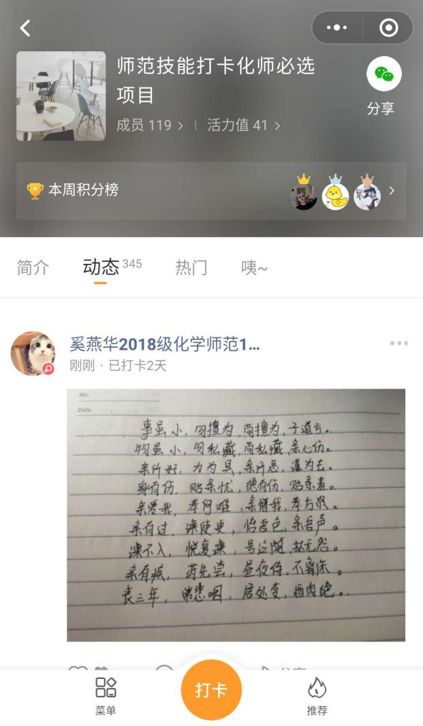 师范技能打卡化师必选
项目
成员 119 >
活力值 41 >
分享
本周积分榜
简介
动态 345
热门
咦~
奚燕华2018级化学师范1...
刚刚 · 已打卡2天
No.
Date.
事虽小，勿擅为，苟擅为，子道亏。
物虽小，勿私藏，苟私藏，亲心伤。
亲所好，力为具，亲所恶，谨为去。
身有伤，贻亲忧，德有伤，贻亲羞。
亲爱我，孝何难，亲憎我，孝方贤。
亲有过，谏使更，怡吾色，柔吾声。
谏不入，悦复谏，号泣随，挞无怨。
亲有疾，药先尝，昼夜侍，不离床。
丧三年，常悲咽，居处变，酒肉绝。
菜单
打卡
推荐